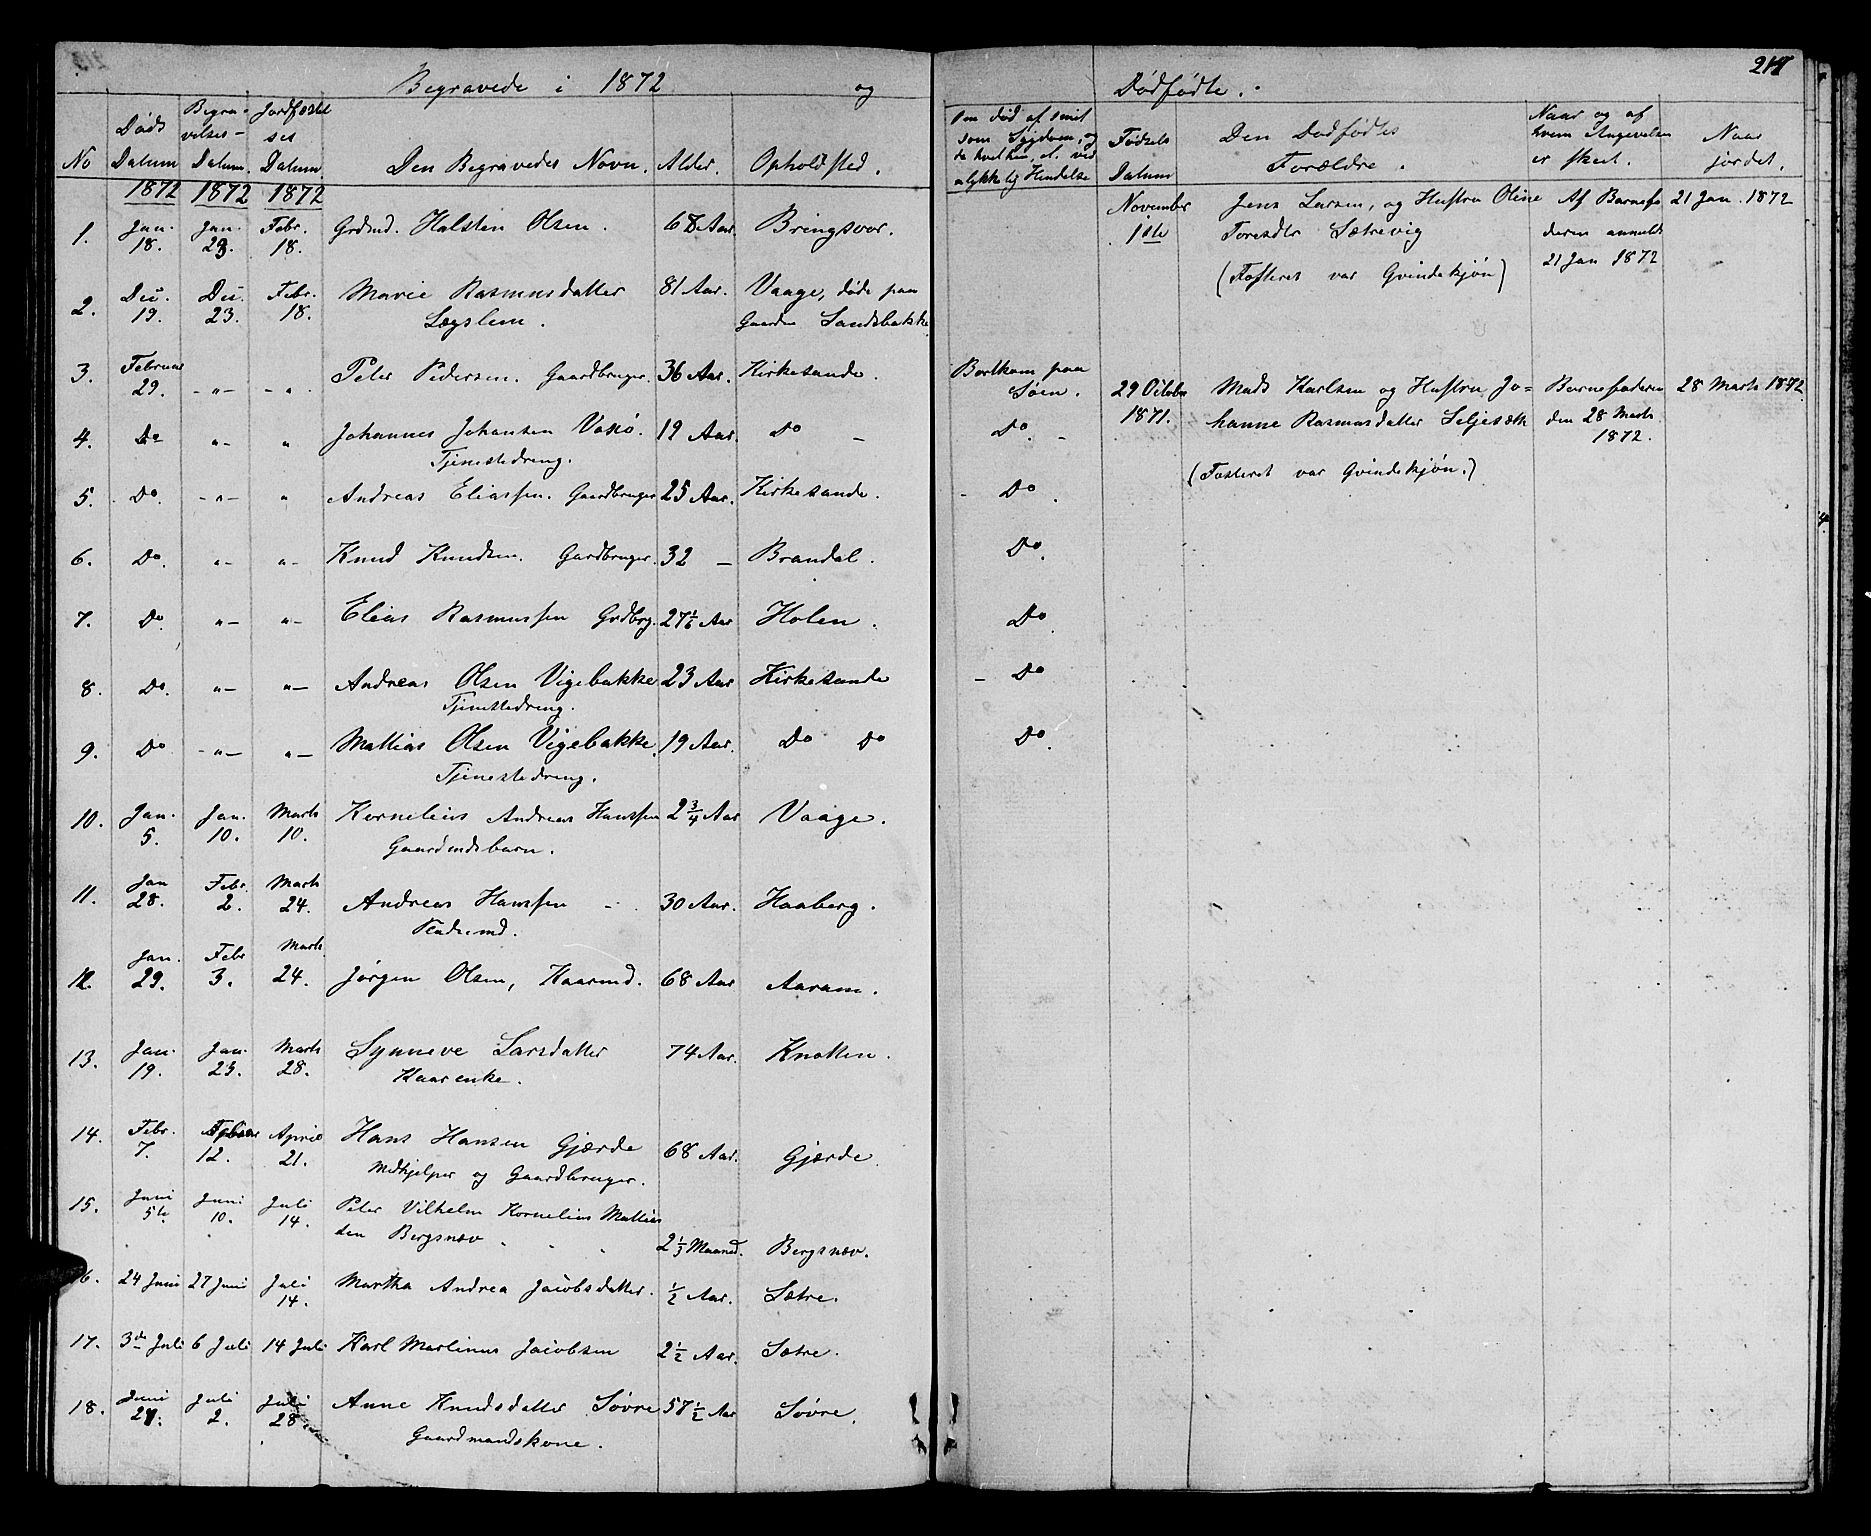 Begravede i 1872 og Dødfødte.
217
No
Døds Datum
Begravelses- Datum.
Jordfæstelses Datum.
Den Begravedes Navn.
Alder.
Opholdsted.
Om død af smit
som Sygdom, og
da hvilken, el. ved
ulykkelig Hendelse
Fødsels Datum
Den Dødfødtes Forældre.
Naar og af
hvem Angivelsen
er skeet.
Naar jordet.
1872 1872 1872
1. Jan. 18. Jan. 23. Febr. 18. Grdmd. Halsten Olsen. 68 Aar. Bringsvor.
November 1ste Jens Larsen, og Hustru Oline Af Barnefa 21 Jan. 1872
Toresdtr Sætrevig deren anmeldt
(Fosteret var Qvindekjøn) 21 Jan 1872
2. Du. 19. Du. 23. Febr. 18. Marie Rasmusdatter 81 Aar. Vaage, døde paa
Lægslem. Gaarden Sandsbakke
3. Februar 29. -"- -" Peter Pedersen. Gaardbruger. 36 Aar. Kirkesande. Bortkom paa Søen.
29 October 1871. Mads Karlsen og Hustru Jo= Barnefaderen 28 Marts 1872.
hanne Rasmusdatter Seljesæth den 28 Marts 1872.
(Fosteret var Qvindekjøn.)
4. Do "- " Johannes Johansen Voksø. 19 Aar. Do - Do. -
Tjenestedreng.
5. Do. -"- " Andreas Eliassen. Gaardbruger 25 Aar. Kirkesande. - Do.
6. Do. "- "- Knud Knudsen. Gardbruger. 32 - Brandal. Do.
7. Do. "- "- Elias Rasmussen Grdbrg. 27½ Aar Holen. Do.
8. Do. "- "- Andreas Olsen Vigebakke 23 Aar Kirkesande - Do
Tjenestedreng.
9. Do -"- "- Mattias Olsen Vigebakke. 19 Aar. Do Do Do.
Tjenestedreng.
10. Jan. 5. Jan. 10. Marts 10. Kornelius Andreas Hanssen 2¾ Aar Vaage.
Gaardmdsbarn.
11. Jan 28. Febr. 2. Marts 24. Andreas Hanssen 30 Aar. Haaberg.
Pladsemd.
12. Jan. 29. Febr 3. Marts 24. Jørgen Olsen, Kaarmd. 68 Aar Aaram.
13. Jan. 19. Jan. 23. Marts 28. Synneve Larsdatter 74 Aar. Knotten.
Kaarenke.
14. Febr. 7. 12. April 21. Hans Hansen Gjærde 68 Aar. Gjærde.
Medhjelper og Gaardbruger.
15. Juni 5te Juni 10. Juli 14. Peter Vilhelm Kornelius Mattias
den Bergsnæv 2⅓ Maaned. Bergsnæv.
16. 24 Juni 27 Juni Juli 14. Martha Andrea Jacobsdatter. ½ Aar. Sætre.
17. 3de Juli 6 Juli 14 Juli Karl Martinus Jacobsen 2½ Aar. Sætre.
18. Juni 27. Juli 2. Juli 28. Anne Knudsdatter Søvre 57½ Aar Søvre.
Gaardmandskone.